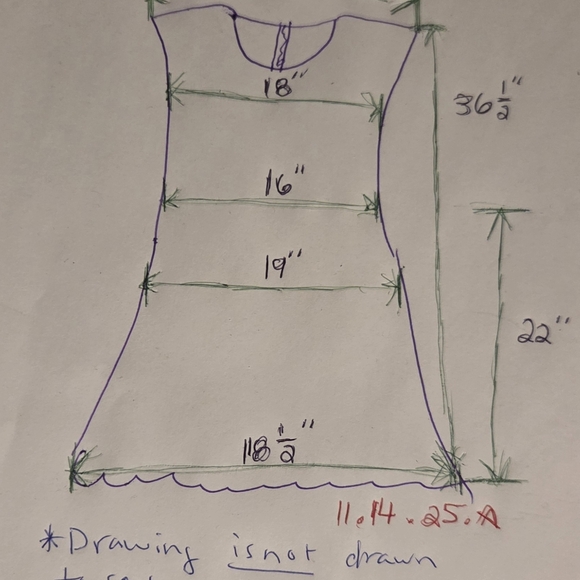 18"
36 1/2"
16"
19"
22"
18 1/2"
11.14.25.A
*Drawing is not drawn